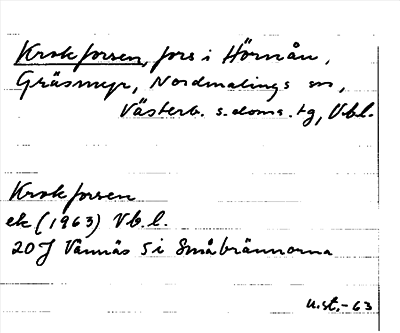 Krokforsen, fors i Hörnån,
Gräsmyr, Nordmalings sn,
Västerb. s. doms. tg, Vbl.
Krokforsen
ek (1963) Vb.l.
20J Vännäs 5i Småbrännorna
u.st.-63